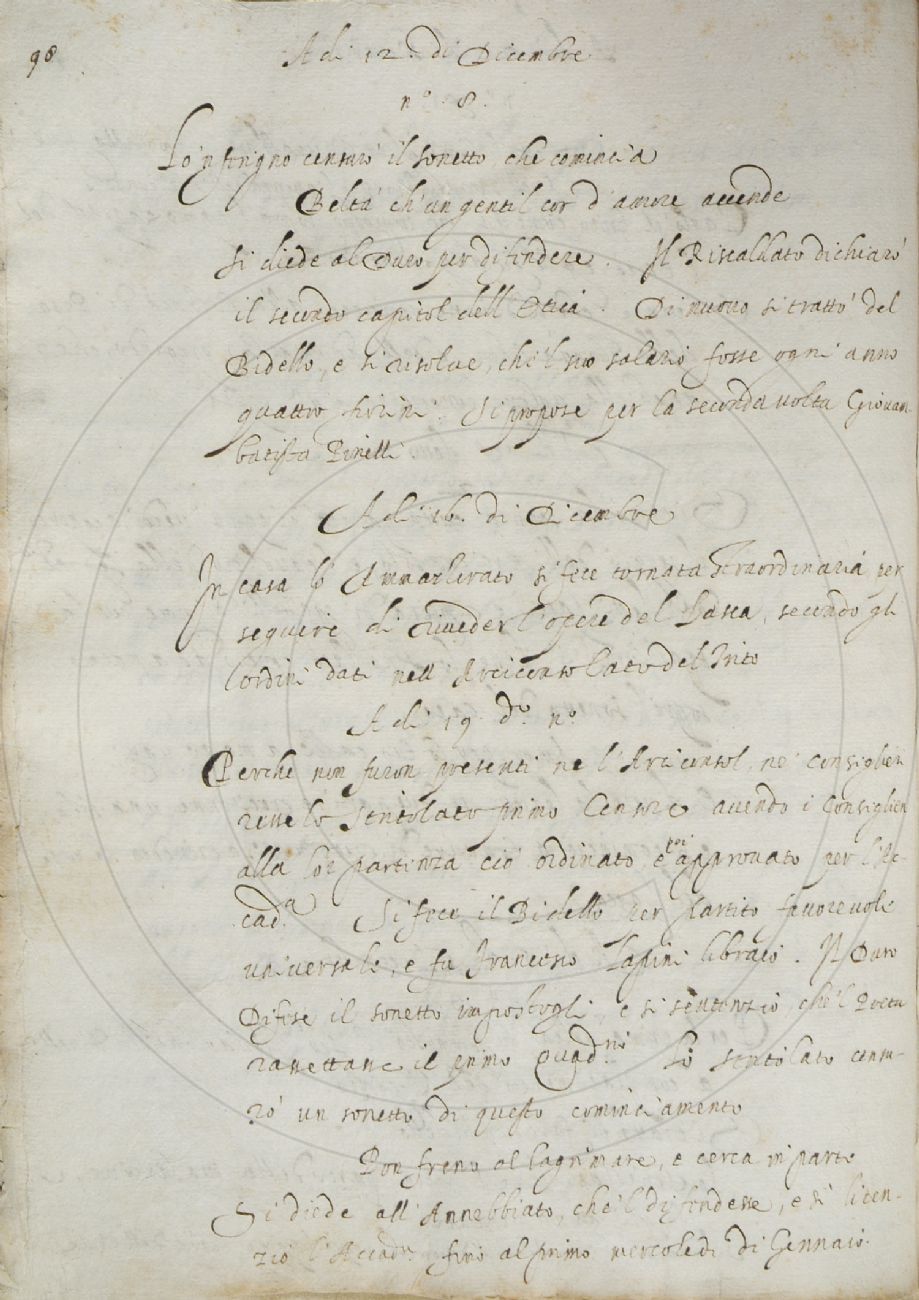 98
A dì 12. di Dicembre
n.° 8.
Lo 'nferigno censurò il sonetto, che comincia
Beltà ch'un gentil cor d'amore accende
si diede al Duro per difendere. Il Riscaldato dichiarò
il secondo capitol dell'Etica. Di nuovo si trattò del
Bidello, e si risolve, che 'l suo salario fosse ogni anno
quattro fiorini. Si propose per la seconda volta Giovan
batista Pinelli.
A dì 16. di Dicembre
In casa lo Ammazzerato si fece tornata straordinaria per
seguire di riveder l'opere del Lasca, secondo gli
ordini dati nell'Arciconsolato del Trito
A dì 19. d.° n.°
Perché non furon presenti né l'Arciconsol, né Consiglieri
resse lo Stritolato primo Censore avendo i Consiglieri
alla lor partenza ciò ordinato, e poi approvato per l'Ac-
cad.a Si fece il Bidello per partito favorevole
universale, e fu Francesco Lapini libraio. Il Duro
Difese il sonetto impostogli, e si sentenziò, che 'l Poeta
rassettasse il primo Quad.rio Lo Stritolato censu-
rò un sonetto di questo cominciamento
Pon freno al lagrimare, e cerca in parte
Si diede all'Annebbiato, che 'l difendesse, e si licen-
ziò l'Accad.a fino al primo mercoledì di Gennaio.